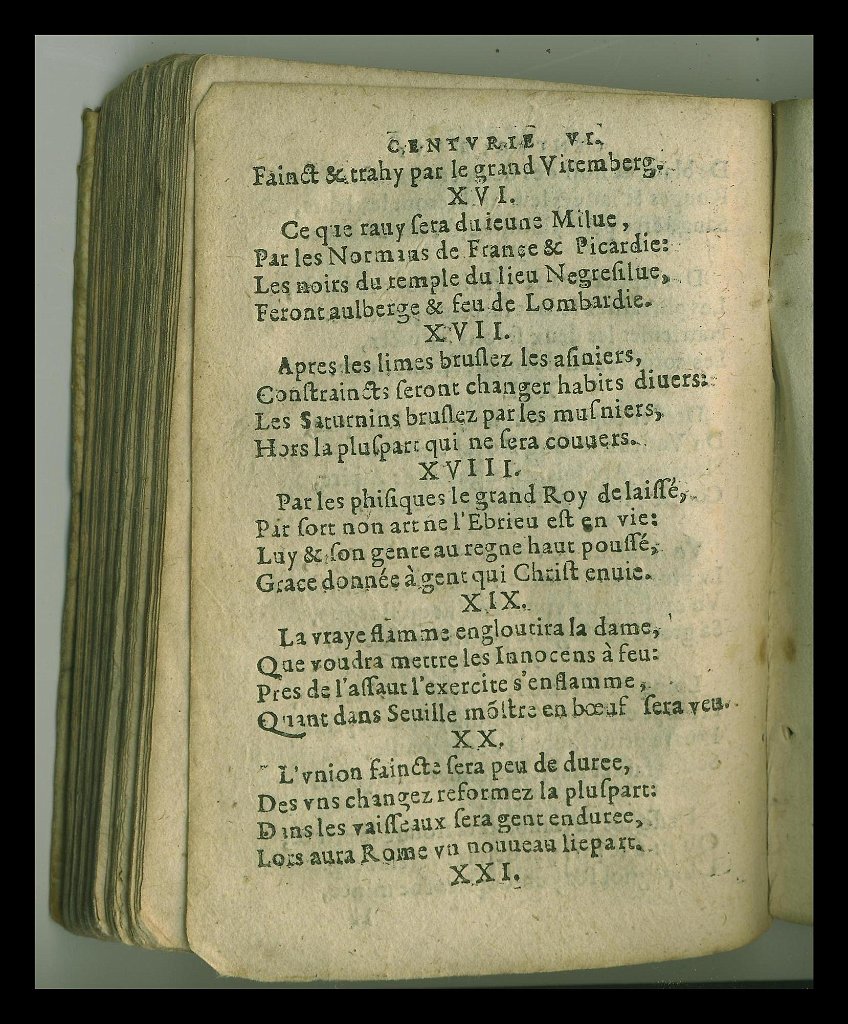 CENTVRIE VI.
Fainct & trahy par le grand Vitemberg.
XVI.
Ce que rauy sera du ieune Milue,
Par les Normans de France & Picardie:
Les noirs du temple du lieu Negresilue,
Feront aulberge & feu de Lombardie.
XVII.
Apres les limes bruslez les asiniers,
Constraincts seront changer habits diuers:
Les Saturnins bruslez par les musniers,
Hors la pluspart qui ne sera couuers.
XVIII.
Par les phisiques le grand Roy delaissé,
Par sort non art ne l'Ebrieu est en vie:
Luy & son genre au regne haut poussé,
Grace donnée à gent qui Christ enuie.
XIX.
La vraye flamme engloutira la dame,
Que voudra mettre les Innocens à feu:
Pres de l'assaut l'exercite s'enflamme,
Quant dans Seuille mõstre en bœuf sera veu.
XX.
L'vnion faincte sera peu de duree,
Des vns changez reformez la pluspart:
Dans les vaisseaux sera gent enduree,
Lors aura Rome vn nouueau liepart.
XXI.